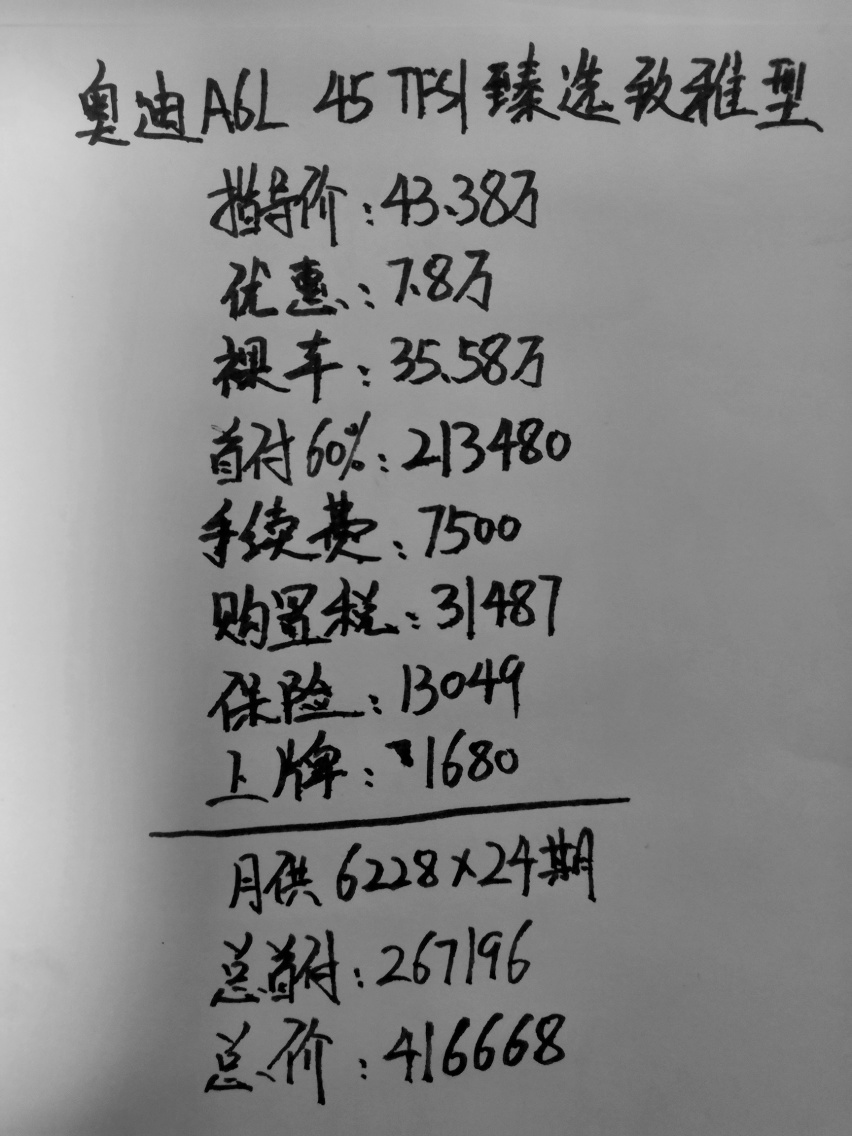 奥迪A6L 45 TFSI臻选致雅型
指导价:43.38万
优惠:7.8万
裸车:35.58万
首付60%:213480
手续费:7500
购置税:31487
保险:13049
上牌:1680
月供6228×24期
总首付:267196
总价:416668